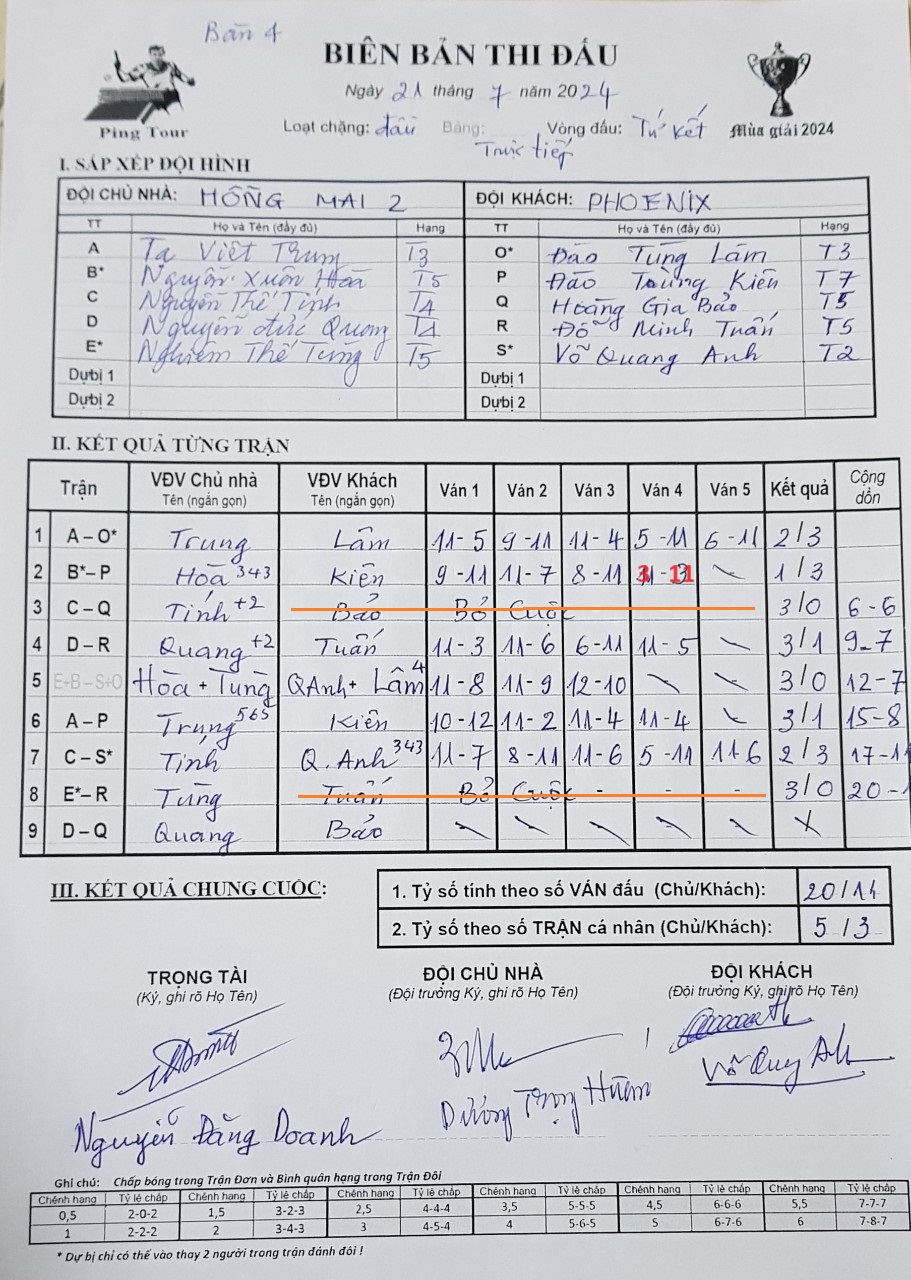 Bàn 4
BIÊN BẢN THI ĐẤU
Ngày 21 tháng 7 năm 2024
Ping Tour
Loại chặng: đấu Bảng: Vòng đấu: Tứ kết
Mùa giải 2024
Trực tiếp
I. SẮP XẾP ĐỘI HÌNH
ĐỘI CHỦ NHÀ: HỒNG MAI 2 ĐỘI KHÁCH: PHOENIX
TT Họ và Tên (đầy đủ) Hạng TT Họ và Tên (đầy đủ) Hạng
A Tạ Viết Trung T3 O* Đào Tùng Lâm T3
B* Nguyễn Xuân Hoà T5 P Đào Trung Kiên T7
C Nguyễn Thế Tính T4 Q Hoàng Gia Bảo T5
D Nguyễn đức Quang T4 R Đỗ Minh Tuấn T5
E* Nghiêm Thế Tùng T5 S* Võ Quang Anh T2
Dự bị 1 Dự bị 1
Dự bị 2 Dự bị 2
II. KẾT QUẢ TỪNG TRẬN
Trận VĐV Chủ nhà VĐV Khách Ván 1 Ván 2 Ván 3 Ván 4 Ván 5 Kết quả Cộng dồn
Tên (ngắn gọn) Tên (ngắn gọn)
1 A – O* Trung Lâm 11-5 9-11 11-4 5-11 6-11 2/3
2 B*– P Hoà 343 Kiên 9-11 11-7 8-11 3 - 11 \ 1/3
3 C – Q Tính +2 Bảo Bỏ Cuộc 3/0 6-6
4 D – R Quang +2 Tuấn 11-3 11-6 6-11 11-5 \ 3/1 9-7
5 E+B – S+O Hòa + Tùng QAnh + Lâm 4 11-8 11-9 12-10 \ \ 3/0 12-7
6 A – P Trung 565 Kiên 10-12 11-2 11-4 11-4 \ 3/1 15-8
7 C – S* Tính Q. Anh 343 11-7 8-11 11-6 5-11 11 6 2/3 17-11
8 E*– R Tùng Tuấn Bỏ Cuộc - - - 3/0 20-
9 D – Q Quang Bảo \ \ \ \ \ X
III. KẾT QUẢ CHUNG CUỘC:
1. Tỷ số tính theo số VÁN đấu (Chủ/Khách): 20/11
2. Tỷ số theo số TRẬN cá nhân (Chủ/Khách): 5/3
TRỌNG TÀI ĐỘI CHỦ NHÀ ĐỘI KHÁCH
(Ký, ghi rõ Họ Tên) (Đội trưởng Ký, ghi rõ Họ Tên) (Đội trưởng Ký, ghi rõ Họ Tên)
Nguyễn Đăng Doanh Dương Trọng
Ghi chú: Chấp bóng trong Trận Đơn và Bình quân hạng trong Trận Đôi
Chênh hạng Tỷ lệ chấp Chênh hạng Tỷ lệ chấp Chênh hạng Tỷ lệ chấp Chênh hạng Tỷ lệ chấp Chênh hạng Tỷ lệ chấp Chênh hạng Tỷ lệ chấp
0,5 2-0-2 1,5 3-2-3 2,5 4-4-4 3,5 5-5-5 4,5 6-6-6 5,5 7-7-7
1 2-2-2 2 3-4-3 3 4-5-4 4 5-6-5 5 6-7-6 6 7-8-7
* Dự bị chỉ có thể vào thay 2 người trong trận đánh đôi !